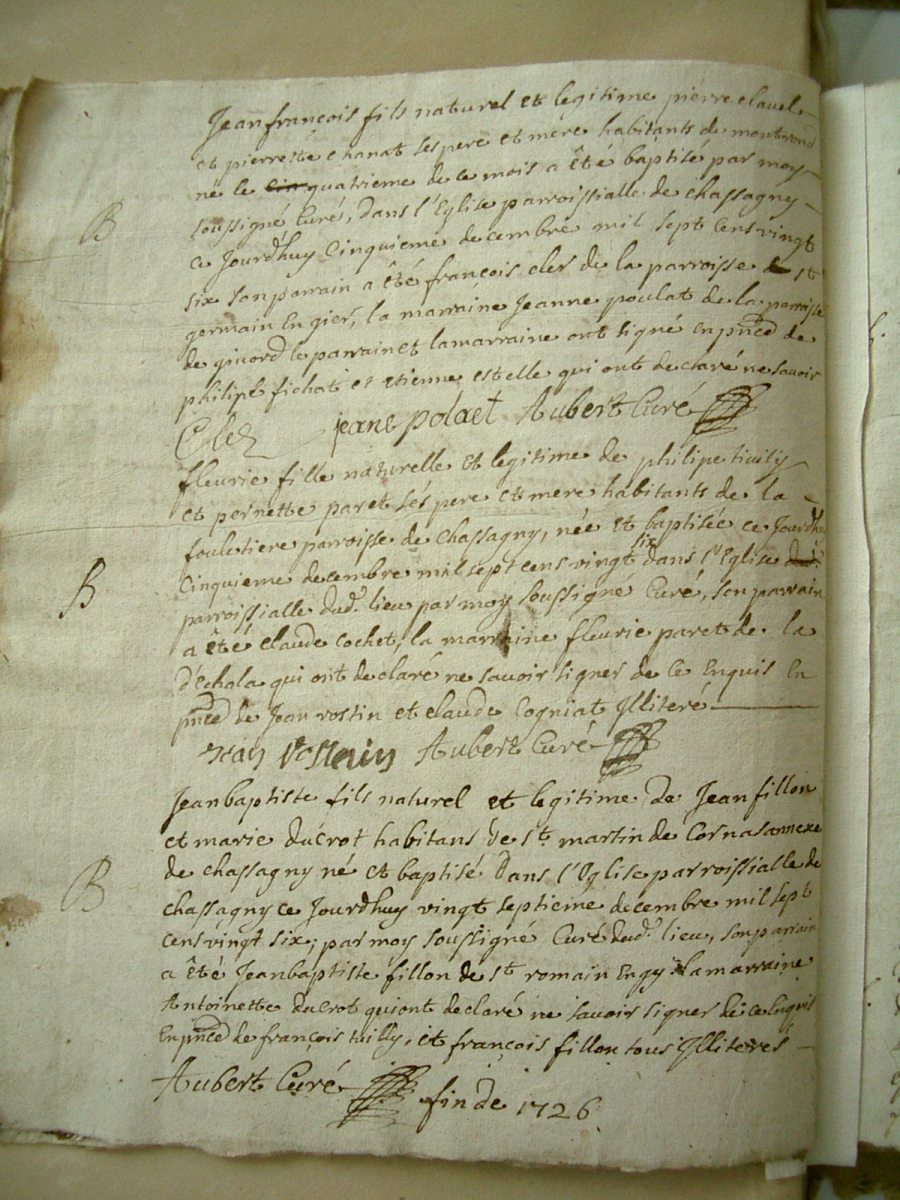 Jean françois fils naturel et legitime pierre clauel
et pierrette chanat ses pere et mere habitants de montrond
né le cin quatrieme de ce mois a été baptisé par moy
B
soussigné Curé, dans l'Eglise parroissialle de chassagny
ce Jourdhuy Cinquieme decembre mil sept Cens vingt
six son parrain a été françois cler de la parroisse de st
germain En gier, la marraine Jeanne poulat de la parroisse
de giuord le parrain et la marraine ont signé en pnce de
philipe fichat et etienne estelle qui ont declaré ne sauoir
Cler jeane polaet Aubert Curé
fleurie fille naturelle et legitime de philipe
et pernette paret sés pere et mere habitants de la
fouletiere parroisse de chassagny, née et baptisée ce Jourdhuy
B
Cinquieme decembre mil sept cens vingt six dans l'Eglise dud.
parroissialle dud. lieu par moy soussigné Curé, son parrain
a été claude cochet, la marraine fleurie paret de la
d'Echala qui ont declaré ne sauoir signer de ce Enquis En
pnce de Jean rostin et claude Cogniat Illiteré
Aubert Curé
Jean baptiste fils naturel et legitime de Jean fillon
et marie ducrot habitans de st. martin de Cornas annexe
B
de chassagny né et baptisé dans l'Eglise parroissialle de
chassagny ce Jourdhuy vingt septieme decembre mil sept
cens vingt six, par moy soussigné Curé dud. lieu, son parrain
a été Jean baptiste fillon de st romain En gy la marraine
Antoinette ducrot qui ont declaré ne sauoir signer de ce Enquis
En pnce de françois et françois fillon tous Illiterés
Aubert Curé fin de 1726